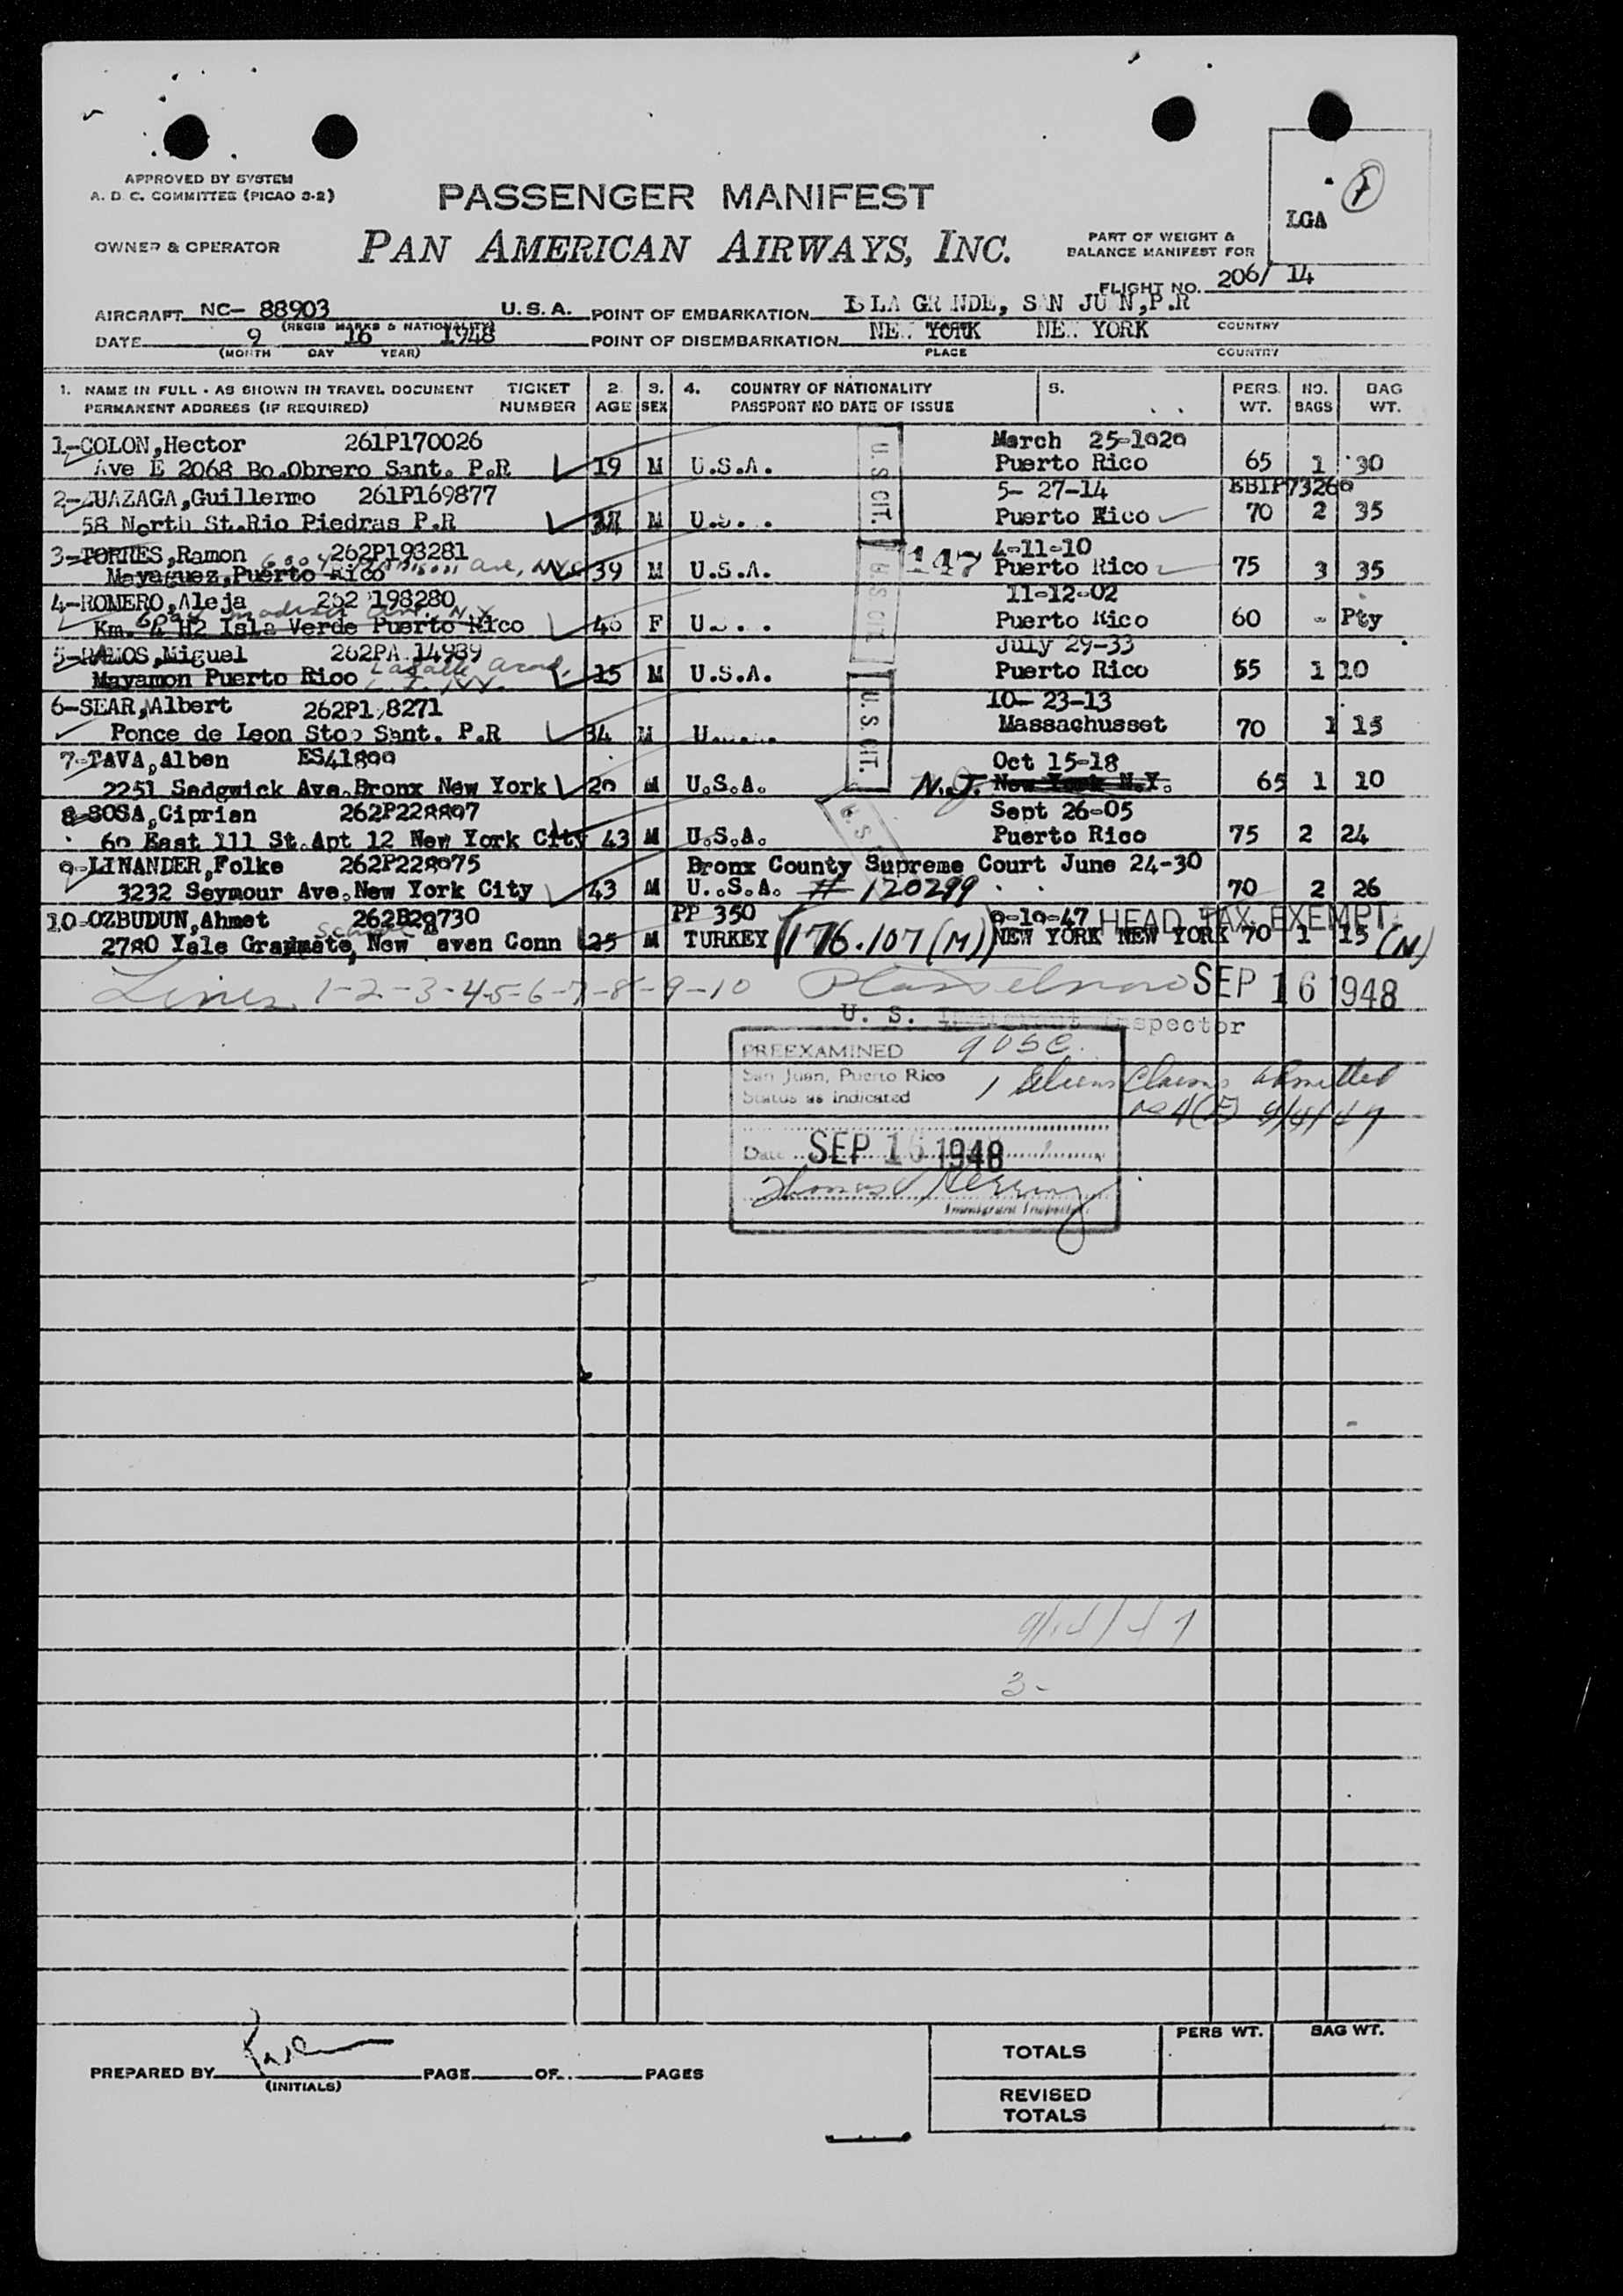 APPROVED BY SYSTEM
A. D. C. COMMITTEE (PICAO S-2)
PASSENGER MANIFEST
LGA
OWNER & OPERATOR
PAN AMERICAN AIRWAYS, INC.
PART OF WEIGHT &
BALANCE MANIFEST FOR
FLIGHT NO. 206/ 14
AIRCRAFT NC- 88903 U.S.A. POINT OF EMBARKATION SLA GR NDE, S N JU N, P.R
(REGIS MARKS & NATIONALITY) COUNTRY
DATE 9 16 1948 POINT OF DISEMBARKATION NE YORK NE YORK
(MONTH DAY YEAR) PLACE COUNTRY
1. NAME IN FULL - AS SHOWN IN TRAVEL DOCUMENT TICKET 2. 3. 4. COUNTRY OF NATIONALITY 5. PERS. NO. BAG
PERMANENT ADDRESS (IF REQUIRED) NUMBER AGE SEX PASSPORT NO DATE OF ISSUE WT. BAGS WT.
1-COLON,Hector 261P170026 March 25-1929
Ave E 2068 Bo.Obrero Sant. P.R 19 M U.S.A. U.S. CIT. Puerto Rico 65 1 30
2-ZUAZAGA,Guillermo 261P169877 5- 27-14
58 North St.Rio Piedras P.R M U.S. . Puerto Rico 70 2 35
3-TORRES,Ramon 262P193281 4-11-10
Mayaguez,Puerto Rico Ave, NYC 39 M U.S.A. 147 Puerto Rico 75 3 35
4-ROMERO,Aleja 262 198280 11-12-02
Km. 4 H2 Isla Verde Puerto Rico F U. . . U.S. CIT. Puerto Rico 60 - Pty
5-RAMOS,Miguel 262PA 14989 July 29-33
Mayamon Puerto Rico Lasalle Acad. 15 M U.S.A. Puerto Rico 55 1 10
6-SEAR,Albert 262P1 8271 10- 23-13
Ponce de Leon Stop Sant. P.R 34 M U. U.S. CIT. Massachusset 70 1 15
7-TAVA,Alben ES41899 Oct 15-18
2251 Sedgwick Ave.Bronx New York 29 M U.S.A. N.J. New York N.Y. 65 1 10
8-SOSA,Ciprian 262P228897 Sept 26-05
60 East 111 St.Apt 12 New York City 43 M U.S.A. U.S. Puerto Rico 75 2 24
9-LINANDER,Folke 262P228975 Bronx County Supreme Court June 24-30
3232 Seymour Ave.New York City 43 M U..S.A. # 120299 70 2 26
10-OZBUDUN,Ahmet 262P29730 PP 350 9-10-47 HEAD TAX EXEMPT
School
2780 Yale Graduate, New aven Conn 25 M TURKEY (176.107(M)) NEW YORK NEW YORK 70 1 15 (N)
Lines 1-2-3-4-5-6-7-8-9-10 SEP 16 1948
U. S. Immigrant Inspector
PREEXAMINED
San Juan, Puerto Rico 1 Aliens Claims Admitted
Status as indicated
Date SEP 16 1948
Immigrant Inspector
3-
TOTALS PERS WT. BAG WT.
PREPARED BY PAGE OF PAGES
(INITIALS)
REVISED
TOTALS